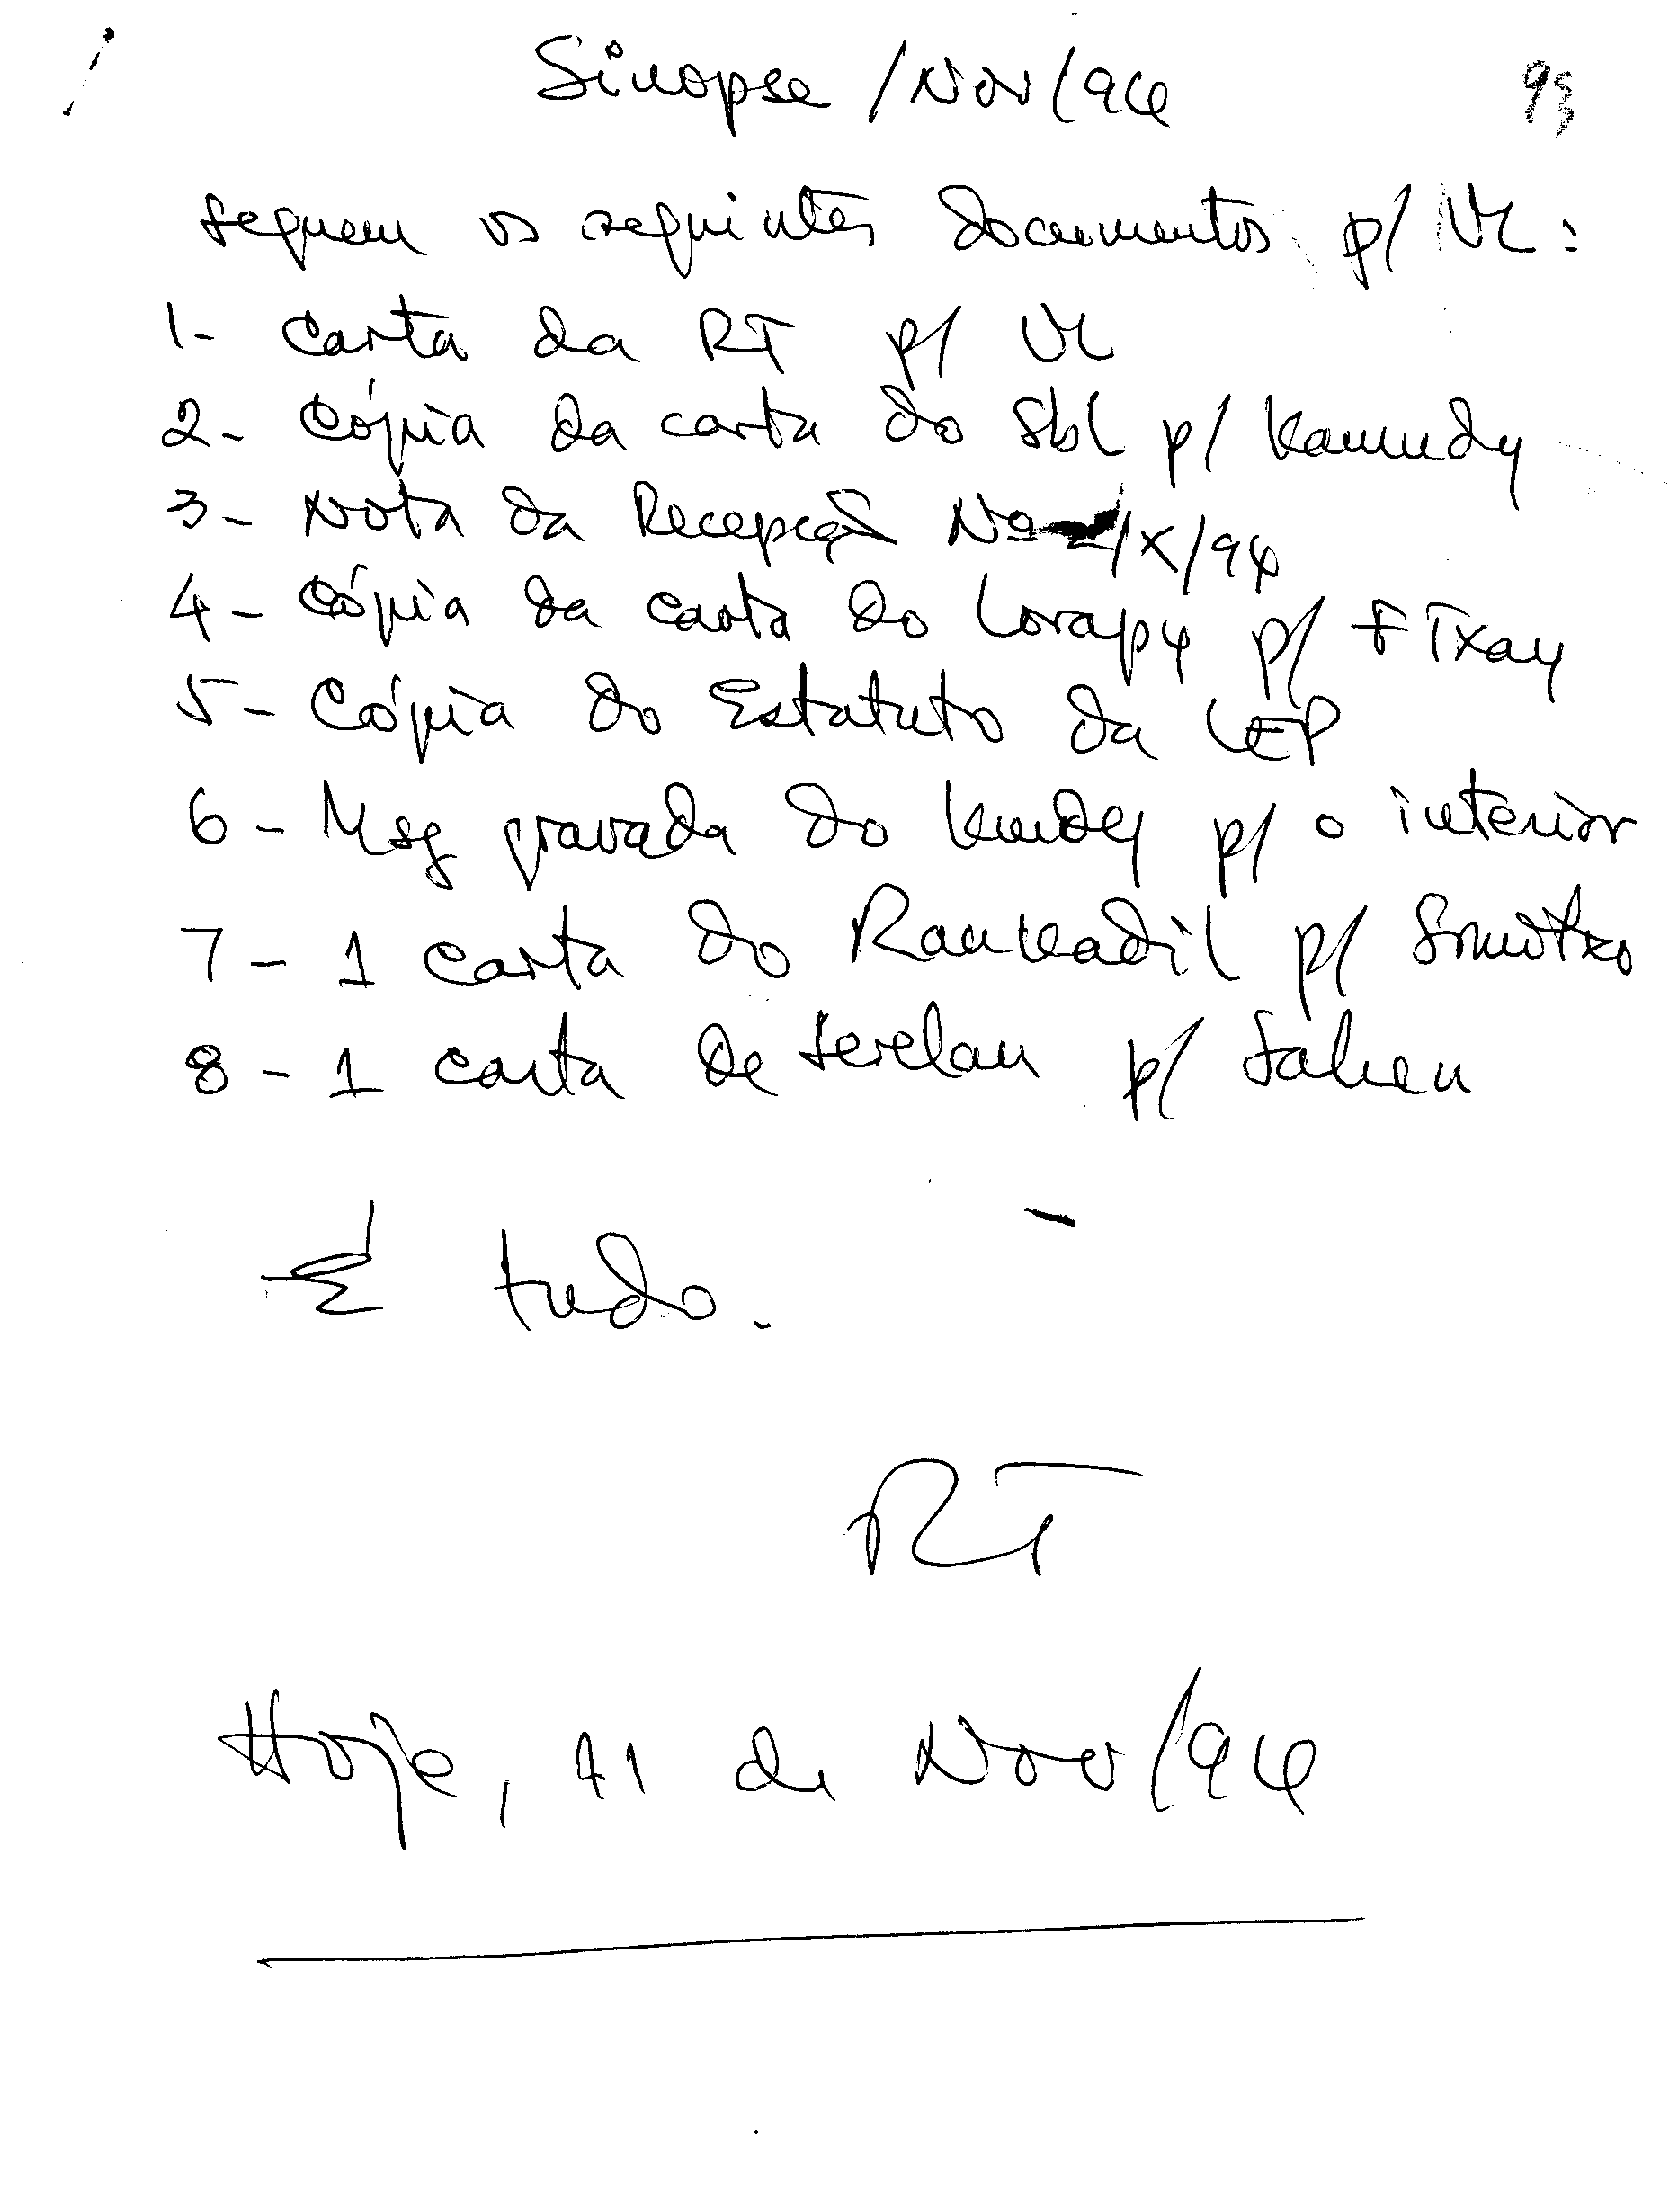 Sinopse /Nov/94
93
seguem os seguintes documentos p/ VL :
1- Carta da RT p/ VL
2- Cópia da carta do Sbl p/ Kamudy
3- Nota da Recepção Nº /X/94
4- Cópia da carta do Lorapy p/ Txay
5- Cópia do Estatuto da LEP
6- Msg gravada do Kmdy p/ o interior
7- 1 carta do Rankadil p/
8- 1 carta de Serelau p/ Saheu
É tudo.
RT
Hoje, 11 de Nov/94